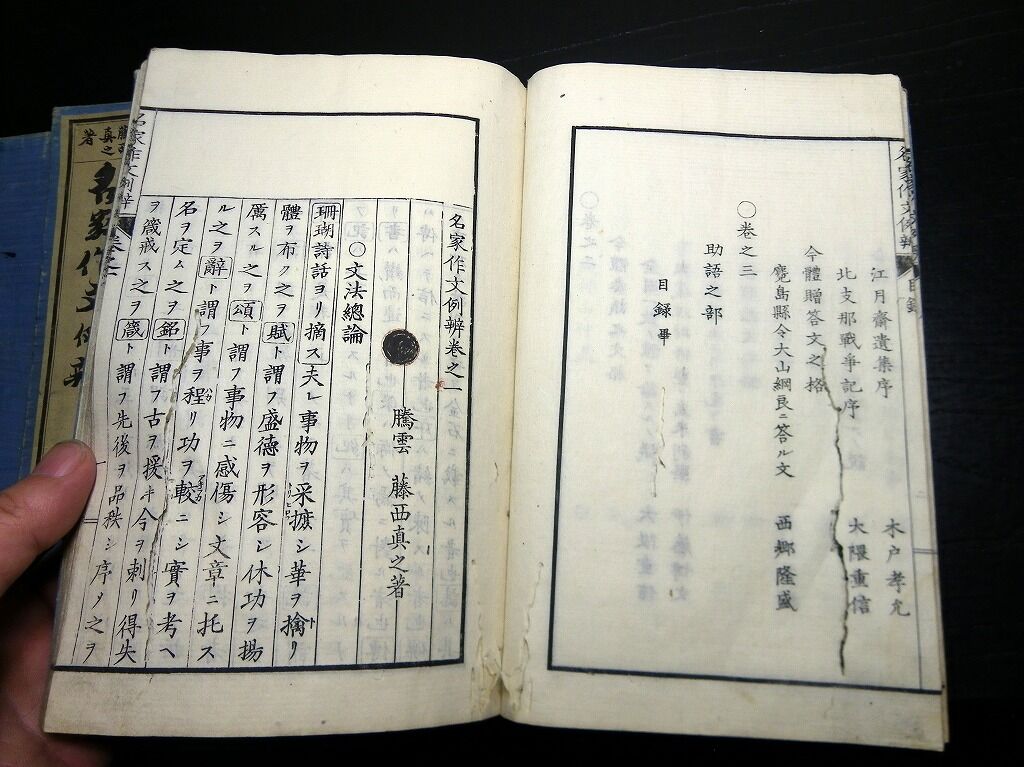 名家作文例辨 目録
江月齋遺集序 木戸孝允
北支那戰爭記序 大隈重信
今體贈答文之格
鹿島縣令大山綱良ニ答ル文 西郷隆盛
〇卷之三
助語之部
目録畢
名家作文例辨卷之一
騰雲 藤西真之著
〇文法總論
珊瑚詩話ヨリ摘ス夫レ事物ヲ采摭シ華ヲ擒リ
體ヲ布ク之ヲ賦ト謂フ盛德ヲ形容シ休功ヲ揚
厲スル之ヲ頌ト謂フ事物ニ感傷シ文章ニ托ス
ル之ヲ辭ト謂フ事ヲ程リ功ヲ較ニシ實ヲ考ヘ
名ヲ定ム之ヲ銘ト謂フ古ヲ援キ今ヲ刺リ得失
ヲ箴戒ス之ヲ箴ト謂フ先後ヲ品秩シ序メ之ヲ
名家作文例辨 卷之一
藤西真之著
名家作文例辨